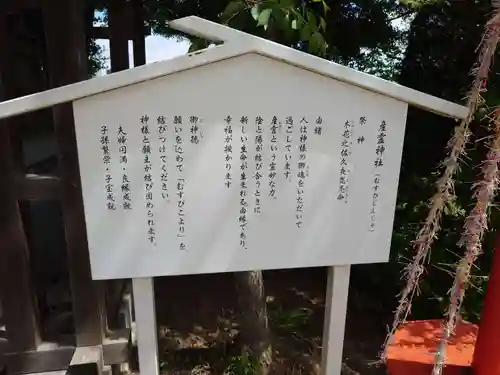 産霊神社(むすびじんじゃ)
祭神
木花之佐久夜毘売命
由緒
人は神様の御魂をいただいて
過ごしています。
産霊という霊妙な力、
陰と陽が結び合うときに
新しい生命が生まれる由縁であり、
幸福が授かります
御神徳
願いを込めて「むすびこより」を
結びつけてください。
神様と願主が結び固められます。
夫婦円満・良縁成就
子孫繁栄・子宝成就